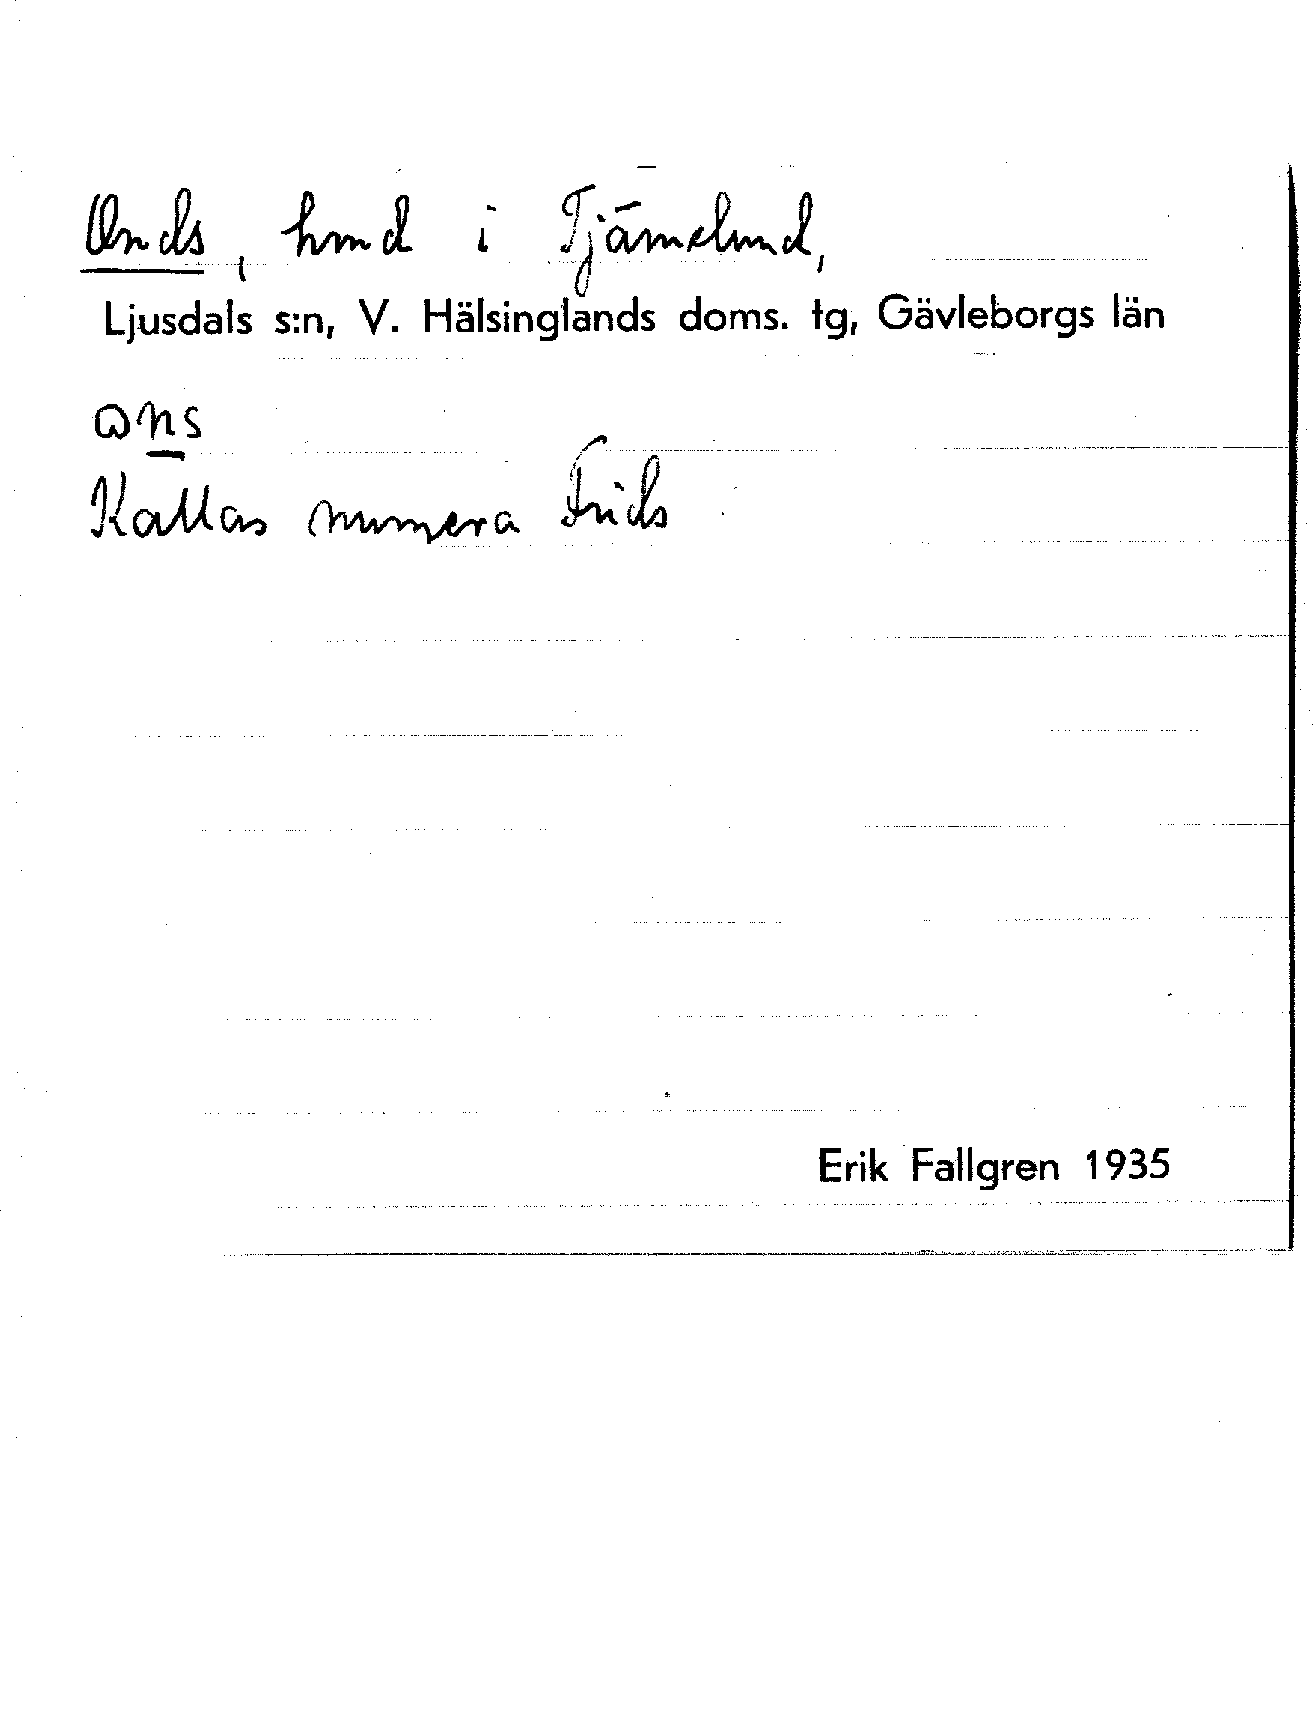 Onds, hmd i Tjämelund,
Ljusdals s:n, V. Hälsinglands doms. tg, Gävleborgs län
ɷns
Kallas numera Frids
Erik Fallgren 1935